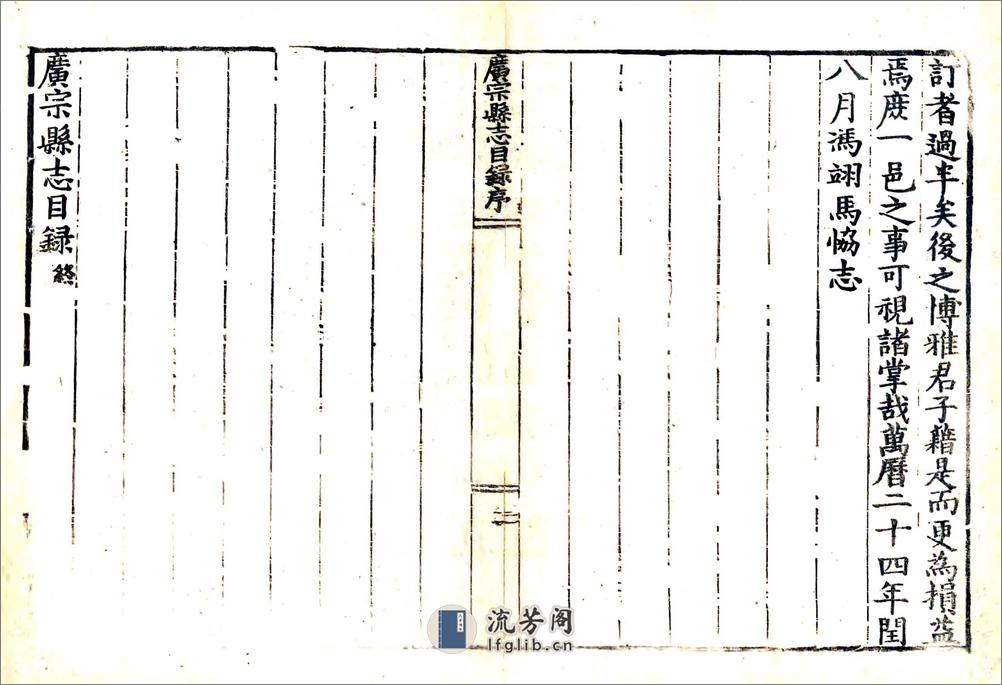 訂者過半矣後之博雅君子藉是而更為損益
焉庶一邑之事可視諸掌哉萬曆二十四年閏
八月馮翊馬恊志
廣宗縣志目録序
二
廣宗縣志目録終
流芳阁
lfglib.cn